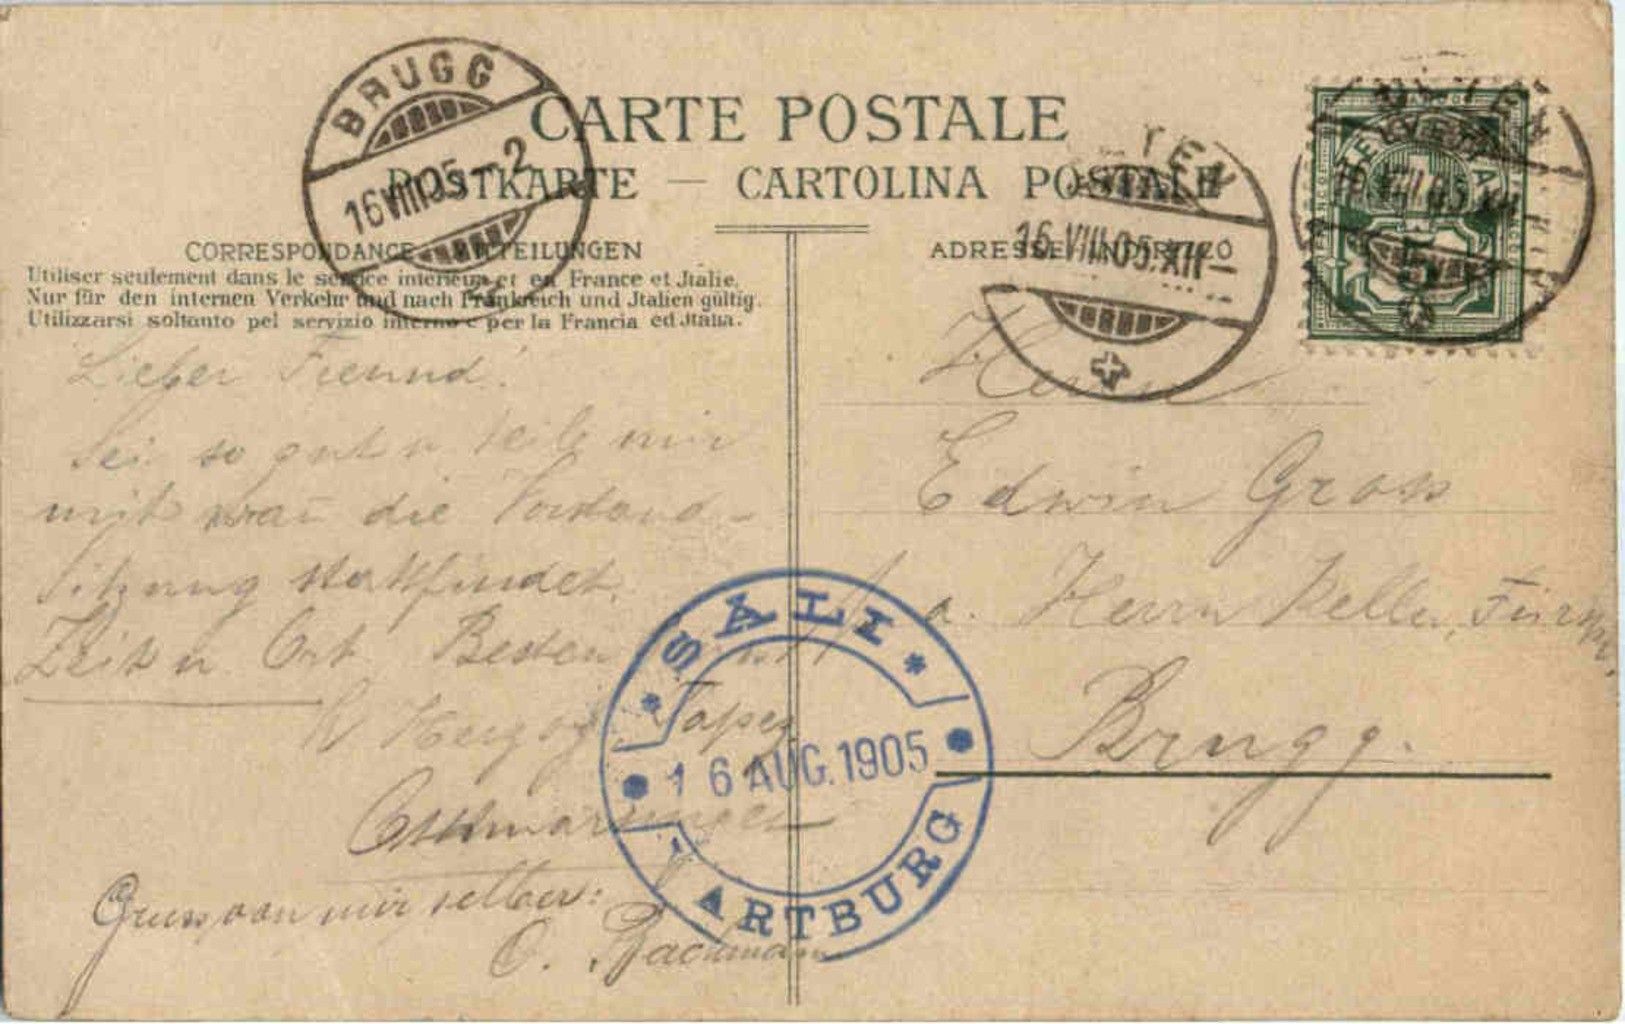 BRUGG
16 VIII 05 – 2
CARTE POSTALE
POSTKARTE — CARTOLINA POSTALE
TEN
16.VIII.05.XII–
HELVETIA
5
VIII.05.XII
CORRESPONDANCE MITTEILUNGEN
Utiliser seulement dans le service intérieur et en France et Jtalie.
Nur für den internen Verkehr und nach Frankreich und Jtalien gültig.
Utilizzarsi soltanto pel servizio interno e per la Francia ed Jtalia.
Lieber Freund!
Sei so gut u teile mir
mit wan̄ die Vorstand-
Sitzung stattfindet.
Zeit u Ort. Besten
R Herzog, Tapez
Othmarsingen
Gruss von mir selber:
O. Bachmann
ADRESSE INDIRIZZO
Herrn
Edwin Gross
p. a. Herrn Keller,
Brugg.
* SÄLI *
16 AUG. 1905
WARTBURG